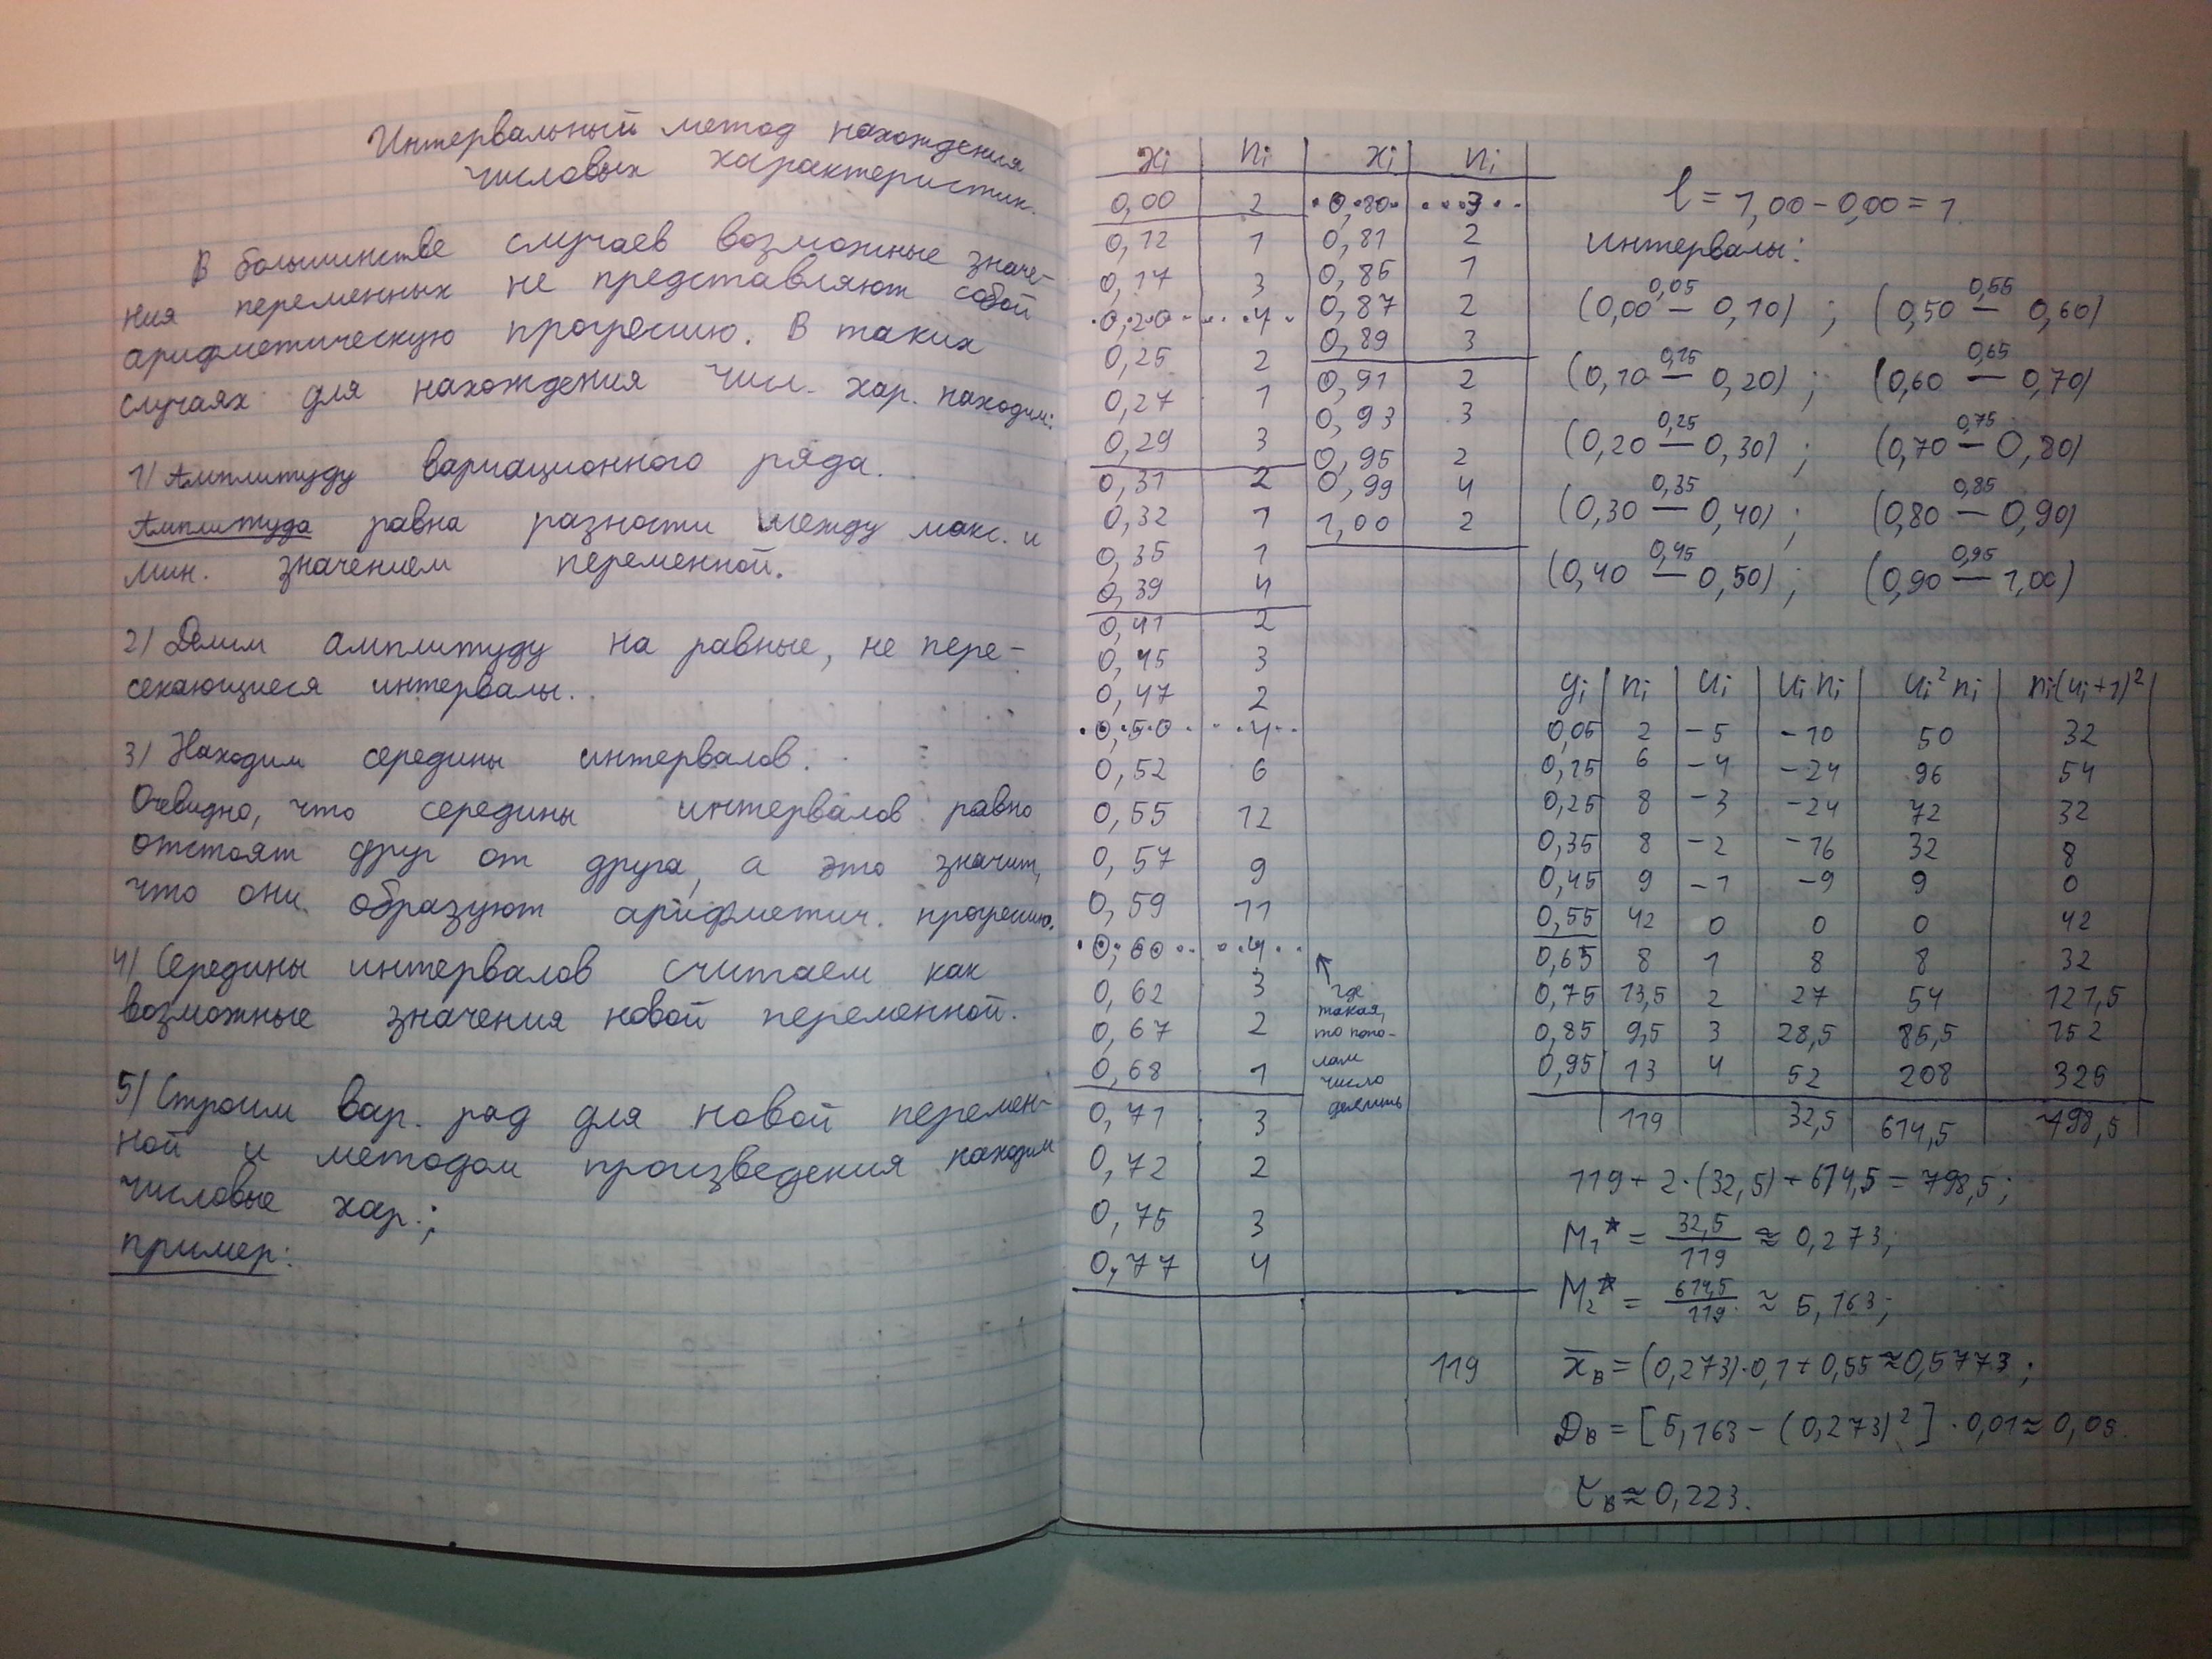 Интервальный метод нахождения
числовых характеристик.
В большинстве случаев возможные значе-
ния переменных не представляют собой
арифметическую прогресию. В таких
случаях для нахождения числ. хар. находим:
1) Амплитуду вариационного ряда.
Амплитуда равна разности между макс. и
мин. значением переменной.
2) Делим амплитуду на равные, не пере-
секающиеся интервалы.
3) Находим середины интервалов.
Очевидно, что середины интервалов равно
отстоят друг от друга, а это значит,
что они образуют арифметич. прогресию.
4) Середины интервалов считаем как
возможные значения новой переменной.
5) Строим вар. ряд для новой перемен-
ной и методом произведения находим
числовые хар.;
пример:
xi ni xi ni
0,00 2 0,80 3
0,12 1 0,81 2
0,17 3 0,86 1
0,20 4 0,87 2
0,25 2 0,89 3
0,27 1 0,91 2
0,29 3 0,93 3
0,31 2 0,95 2
0,32 1 0,99 4
0,35 1 1,00 2
0,39 4
0,41 2
0,45 3
0,47 2
0,50 4
0,52 6
0,55 12
0,57 9
0,59 11
0,60 4
0,62 3
0,67 2
0,68 1
0,71 3
0,72 2
0,75 3
0,77 4
119
где
такая,
то попо-
лам
число
делишь
l = 1,00 - 0,00 = 1.
интервалы:
0,05 0,55
(0,00 — 0,10) ; (0,50 — 0,60)
0,15 0,65
(0,10 — 0,20) ; (0,60 — 0,70)
0,25 0,75
(0,20 — 0,30) ; (0,70 — 0,80)
0,35 0,85
(0,30 — 0,40) ; (0,80 — 0,90)
0,45 0,95
(0,40 — 0,50) ; (0,90 — 1,00)
yi ni ui ui ni ui² ni ni(ui+1)²
0,05 2 -5 -10 50 32
0,15 6 -4 -24 96 54
0,25 8 -3 -24 72 32
0,35 8 -2 -16 32 8
0,45 9 -1 -9 9 0
0,55 42 0 0 0 42
0,65 8 1 8 8 32
0,75 13,5 2 27 54 121,5
0,85 9,5 3 28,5 85,5 152
0,95 13 4 52 208 325
119 32,5 614,5 798,5
119 + 2·(32,5) + 614,5 = 798,5;
M₁* = 32,5/119 ≈ 0,273;
M₂* = 614,5/119 ≈ 5,163;
x̄в = (0,273)·0,1 + 0,55 ≈ 0,5773;
Dв = [5,163 - (0,273)²] · 0,01 ≈ 0,05.
τв ≈ 0,223.